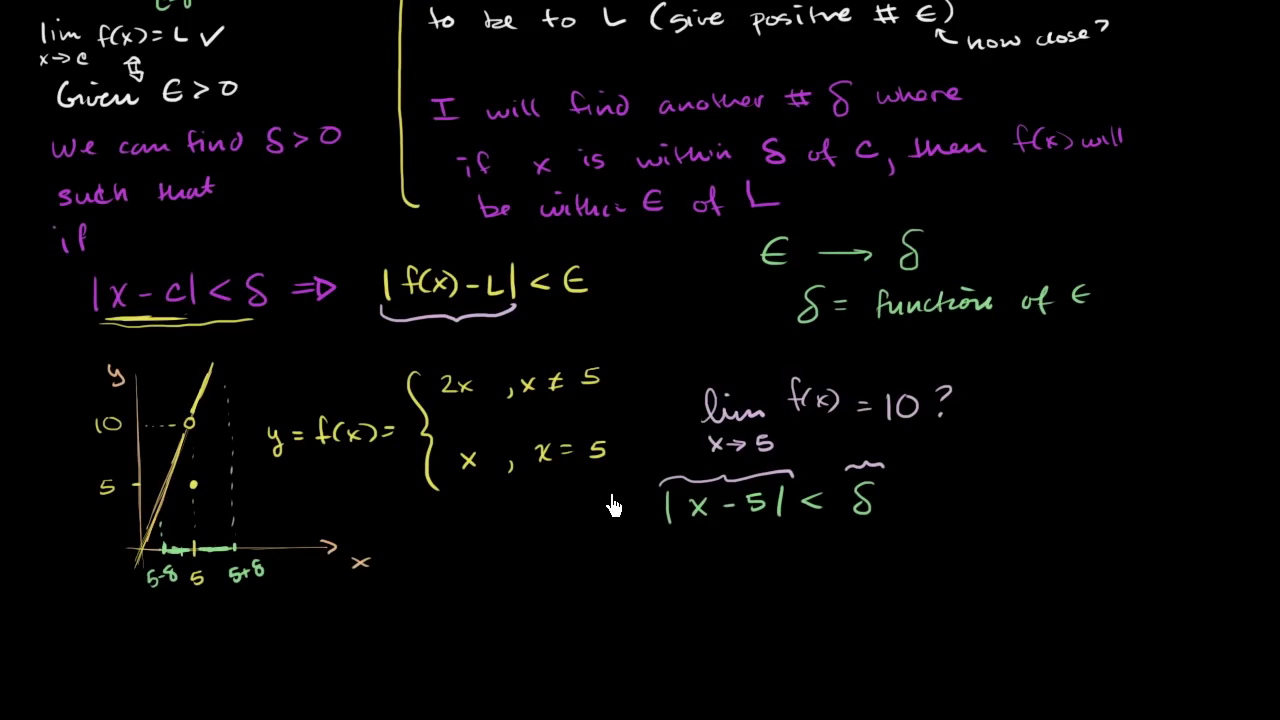 lim f(x) = L ✓
x→c
Given ϵ > 0
we can find δ > 0
such that
if
|x - c| < δ ⇒ |f(x) - L| < ϵ
to be to L (give positive # ϵ)
how close?
I will find another # δ where
if x is within δ of c, then f(x) will
be within ϵ of L
ϵ → δ
δ = function of ϵ
y
10
5
5-δ 5 5+δ
x
y = f(x) = { 2x , x ≠ 5
x , x = 5
lim f(x) = 10 ?
x→5
|x - 5| < δ